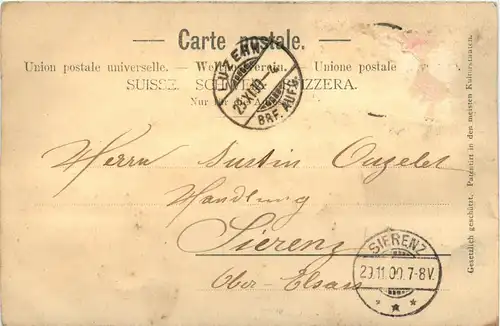 — Carte postale. —
Union postale universelle. — Weltpostverein. — Unione postale
SUISSE. SCHWEIZ. SVIZZERA.
Nur für
LUZERN
29.XI.00.
BRF. AUFG.
Herrn Justin
Handlung
Sierenz
Ober-Elsass
SIERENZ
29.11.00.7-8V.
Gesetzlich geschützt. Patentirt in den meisten Kulturstaaten.